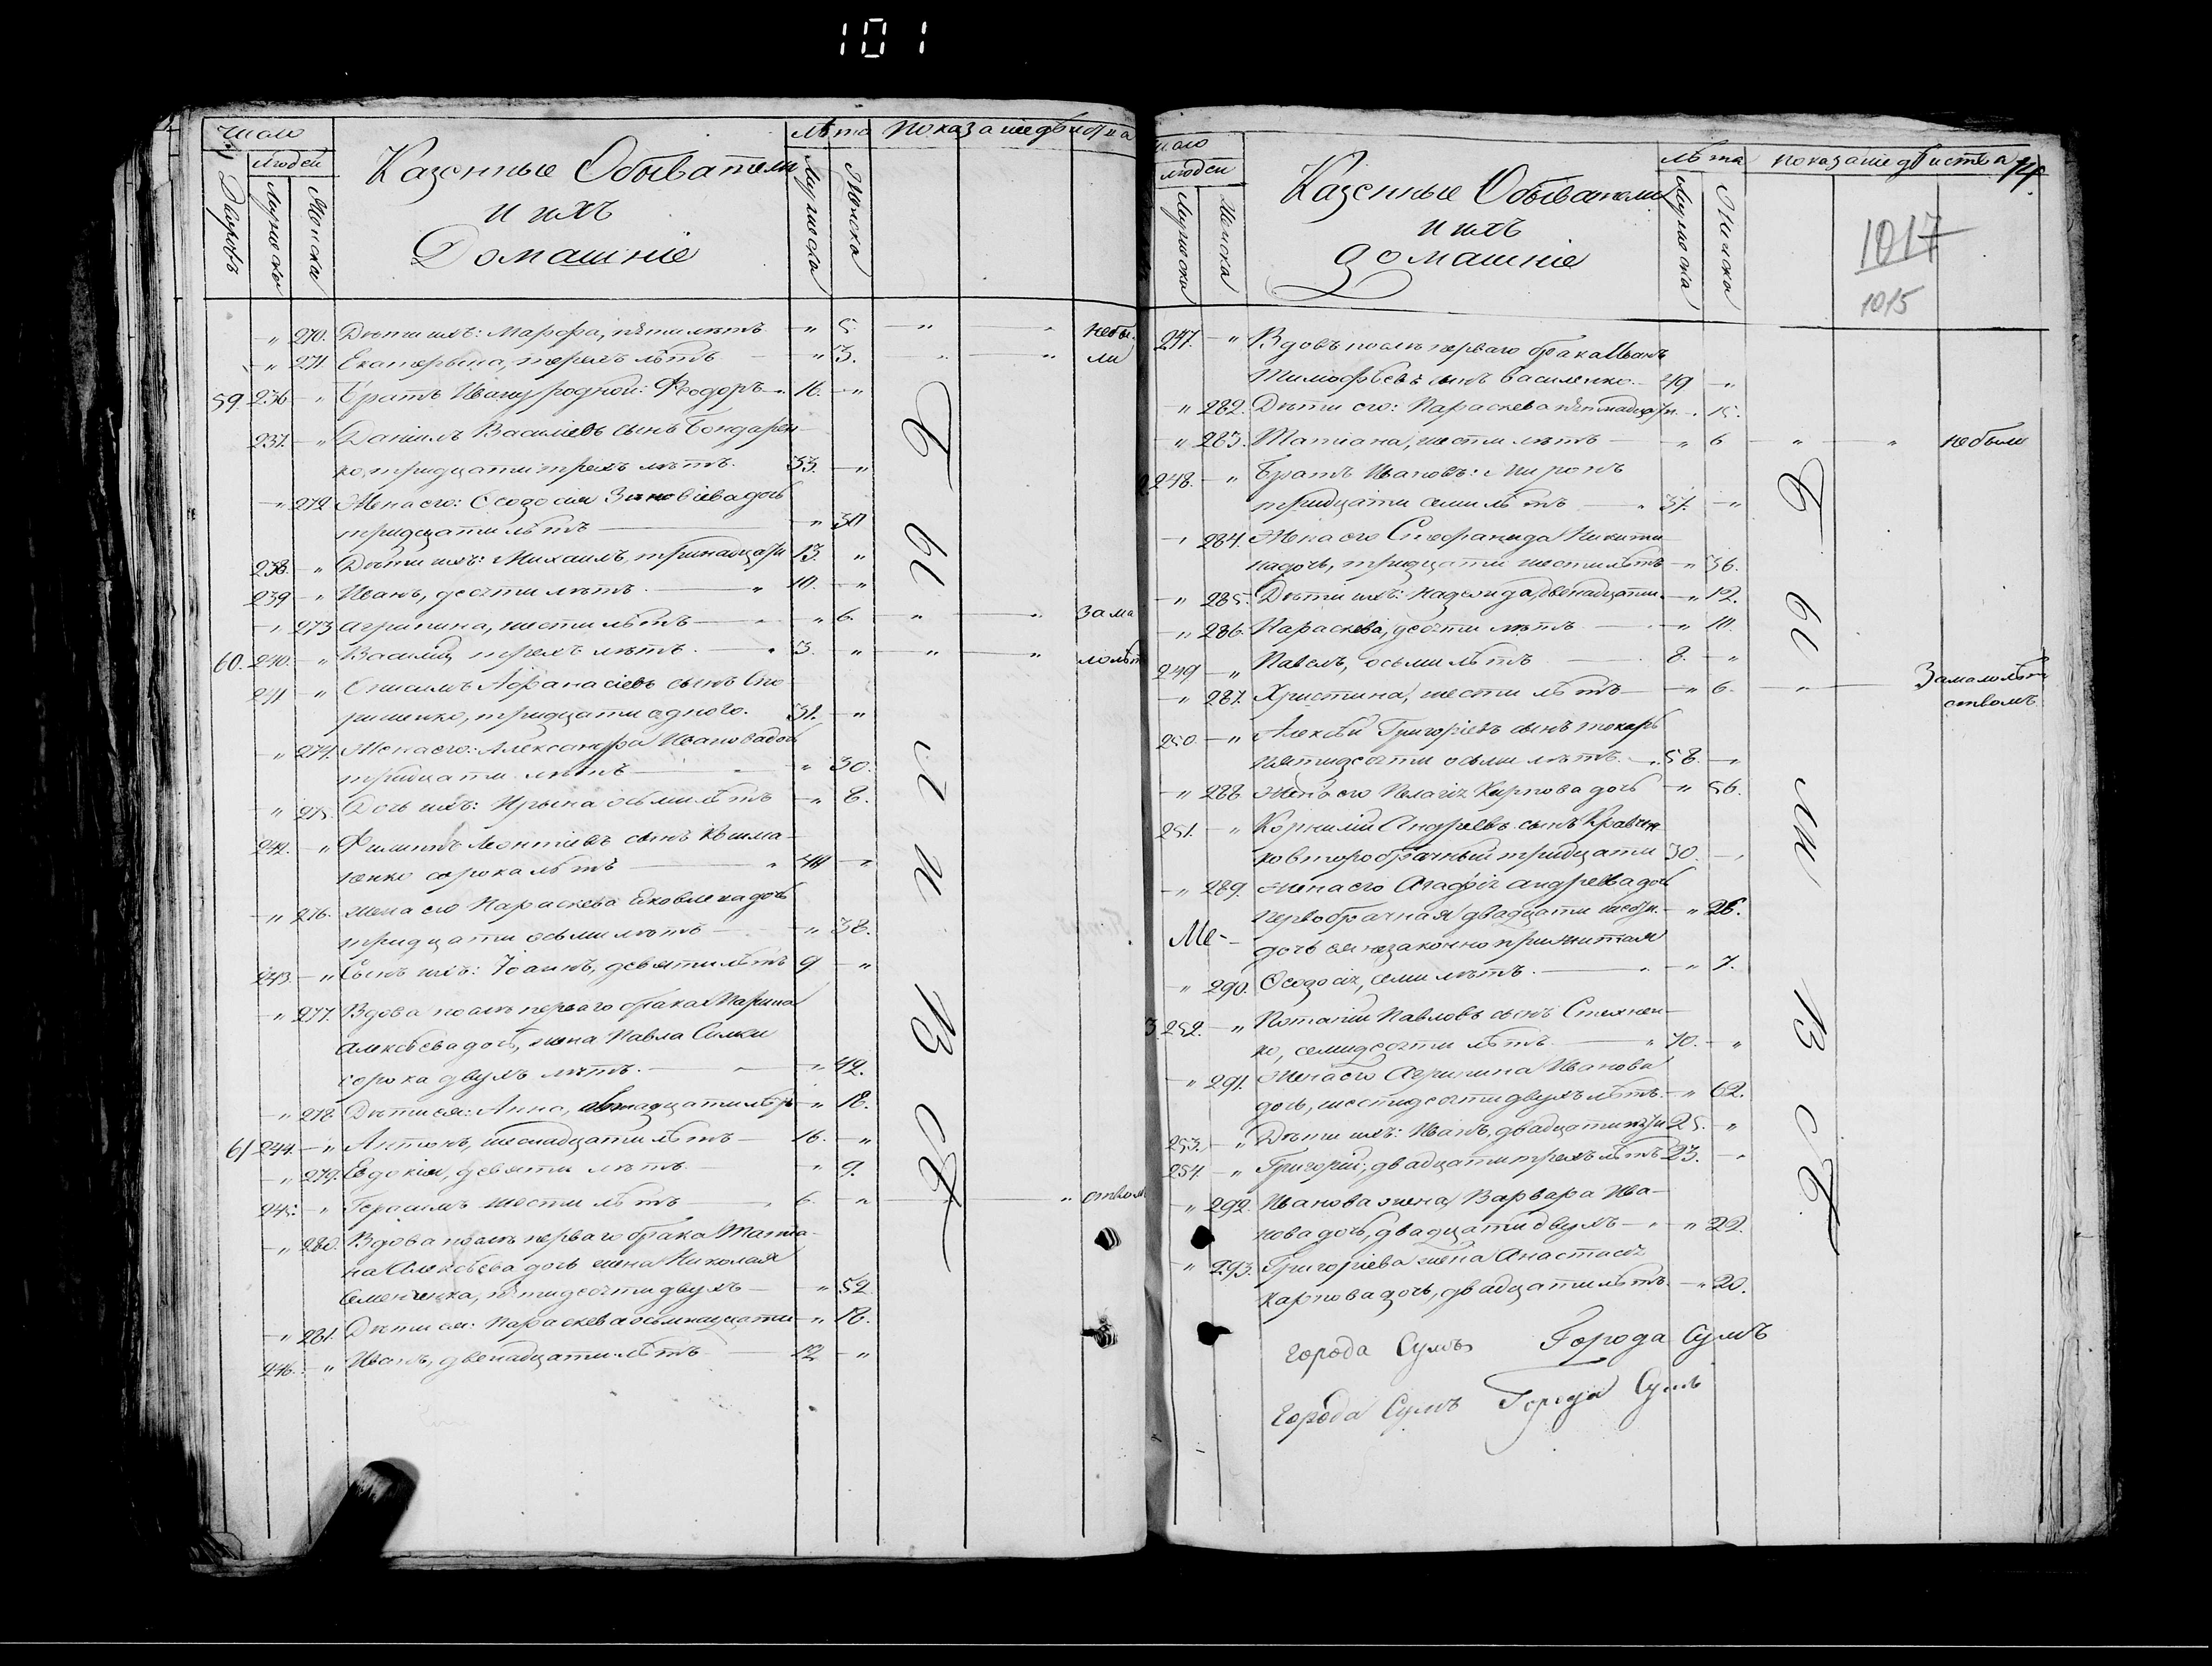 101
Число
Людей
Дворовъ
Мужеска
Женска
Казенные Обыватели
и ихъ
Домашніе
Лѣта
Мужеска
Женска
Показаніе дѣйства
„ 270. Дѣти ихъ: Марфа, пяти лѣтъ — „ 5. „ „ небы-
„ 271 Екатерына, трехъ лѣтъ — „ 3. „ „ ли
59. 236 „ Братъ Ивану родной: Феодоръ 16. — „
237. „ Даніилъ Василіевъ сынъ Бондарен-
ко, тридцати трехъ лѣтъ. 33. — „
„ 272 Жена его: Феодосія Зиновіева дочь
тридцати лѣтъ — „ 30
238. „ Дѣти ихъ: Михаилъ, тринадцати 13. „
239 „ Иванъ, десяти лѣтъ. — „ 10. — „
„ 273 Агрипина, шести лѣтъ — „ 6. „ „ За ма
60. 240. „ Василій, трехъ лѣтъ. — 3. „ „ „ лолѣт
241 „ Афанасіевъ сынъ
тридцати одного. 31. — „
„ 274. Жена его: Александра Иванова дочь
тридцати лѣтъ — „ 30.
„ 275. Дочь ихъ: Ирына осьми лѣтъ — „ 8.
242. „ Филиппъ Леонтіевъ сынъ
сорока лѣтъ — „ 40 — „
„ 276. Жена его Параскева Яковлева дочь
тридцати осьми лѣтъ — „ 38.
243. — „ Сынъ ихъ: Іоаннъ, девяти лѣтъ 9 — „
„ 277. Вдова послѣ перваго брака Марина
Алексѣева дочь, жена Павла
сорока двухъ лѣтъ. — „ 42.
„ 278. Дѣти ея: Анна, — „ 18.
61 244. — „ Антонъ, шеснадцати лѣтъ — 16. — „
„ 279. Евдокія, девяти лѣтъ. — „ 9.
245. „ Герасимъ шести лѣтъ — 6. „ „ ством
„ 280. Вдова послѣ перваго брака Татіа-
на Алексѣева дочь жена Николая
Семененка, пятидесяти двухъ — „ 52
„ 281. Дѣти ея: Параскева осьмнадцати — „ 18.
246. — „ Иванъ, двенадцати лѣтъ — 12 — „
Были
в св
Число
Людей
Мужеска
Женска
Казенные Обыватели
и ихъ
домашніе
Лѣта
Мужеска
Женска
Показаніе дѣйства
1017
1015
247. — „ Вдовъ послѣ перваго брака Иванъ
Тимофѣевъ сынъ Василенко. — 49 — „
„ 282. Дѣти его: Параскева пятнадцати. — 15.
„ 283. Татіана, шести лѣтъ — „ 6 — „ — „ небыли
248. — „ Братъ Ивановъ: Миронъ
тридцати семи лѣтъ — 37. — „
„ 284. Жена его Стефанида Никити-
на дочь, тридцати шести лѣтъ — „ 36.
„ 285. Дѣти ихъ: Надежда, двенадцати. — „ 12.
„ 286. Параскева, десяти лѣтъ — „ 10.
249 — „ Павелъ, осьми лѣтъ 8. — „
„ 287. Христина, шести лѣтъ — „ 6. „ За малолѣт-
ствомъ
250. — „ Алексѣй Григорьевъ сынъ токарь
пятидесяти осьми лѣтъ. — 58. — „
„ 288 Жена его Пелагія Карпова дочь — „ 56.
251. — „ Корнилій Андреевъ сынъ Кравчен-
ко второбрачный тридцати 30. — „
„ 289. Жена его Агафія Андреева дочь
первобрачная двадцати шести. — „ 26.
Ме- дочь ея незаконно прижитая
„ 290. Феодосія, семи лѣтъ. — „ 7.
3 252. — „ Потапій Павловъ сынъ Степнен-
ко, семидесяти лѣтъ — 70. — „
„ 291. Жена его Агрипина Иванова
дочь, шестидесяти двухъ лѣтъ. — „ 62.
253. — „ Дѣти ихъ: Иванъ, двадцати пяти 25. — „
254. — „ Григорій, двадцати трехъ лѣтъ 23. — „
„ 292. Иванова жена Варвара Ива-
нова дочь, двадцати двухъ — „ 22.
„ 293. Григоріева жена Анастасія
Карпова дочь, двадцати лѣтъ. — „ 20.
Были
в св
города Сумъ Города Сумъ
города Сумъ Города Сумъ